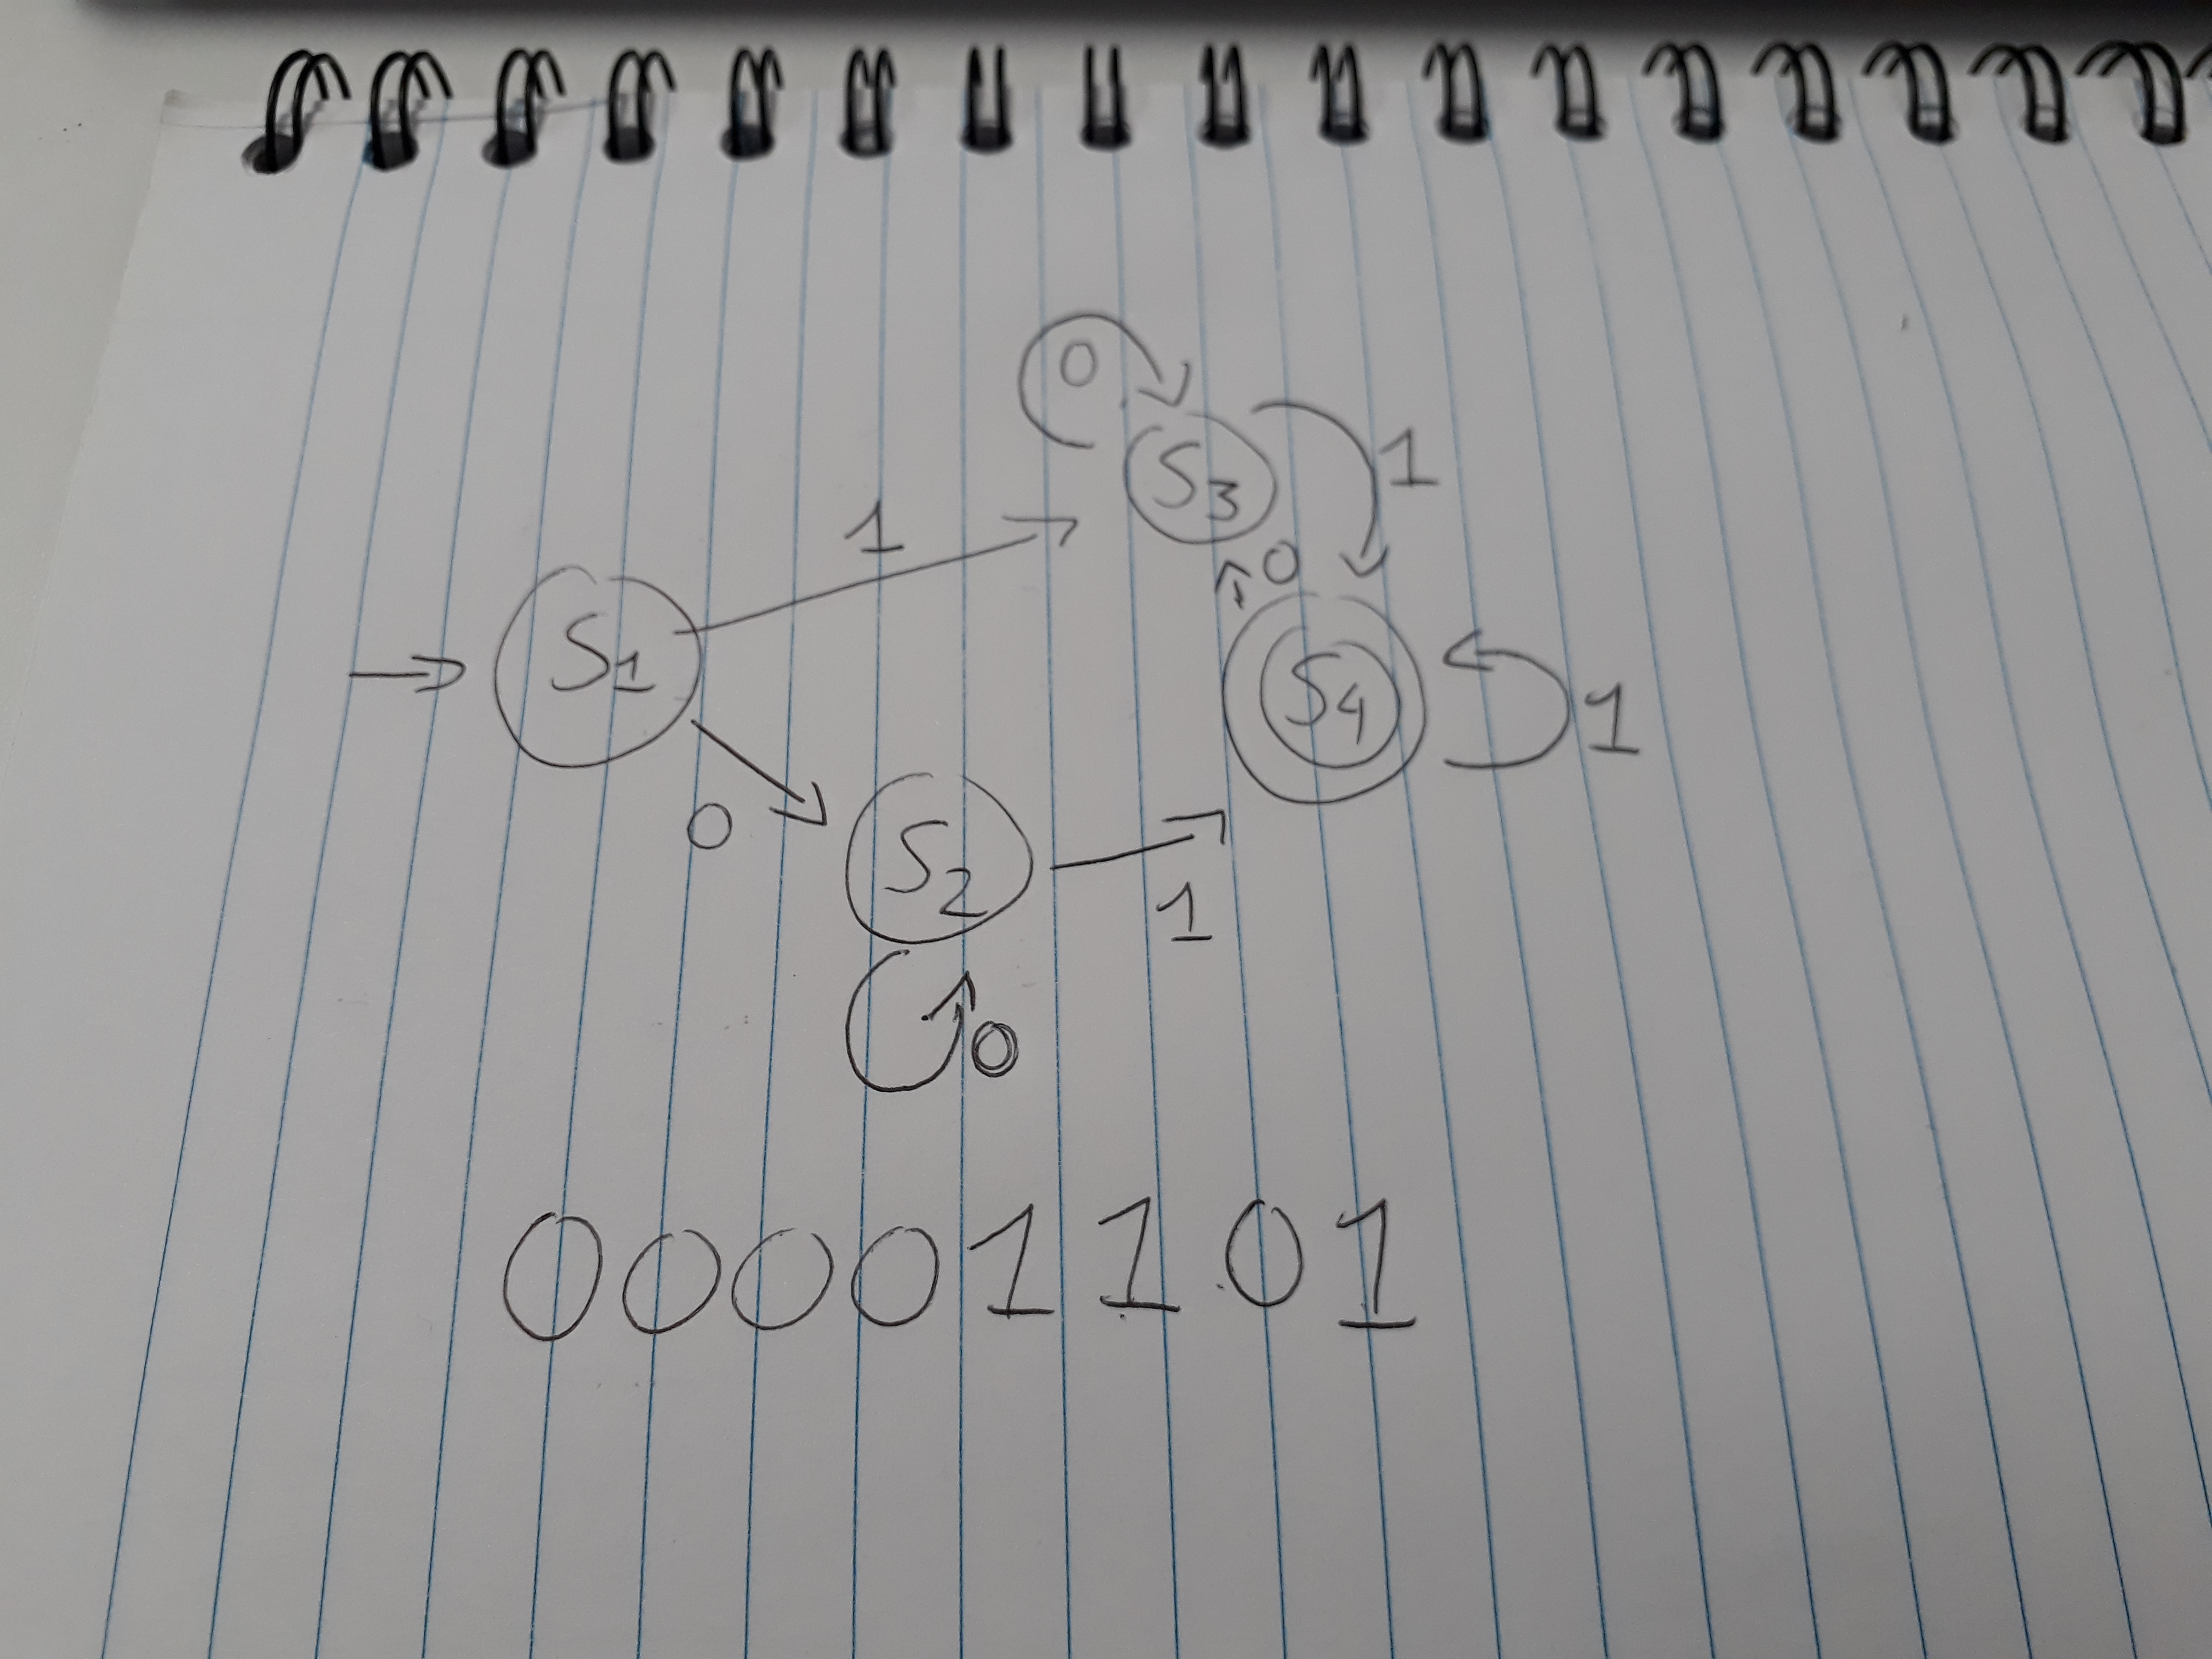 0
S3
1
1
0
S1
S4
1
0
S2
1
0
00001101